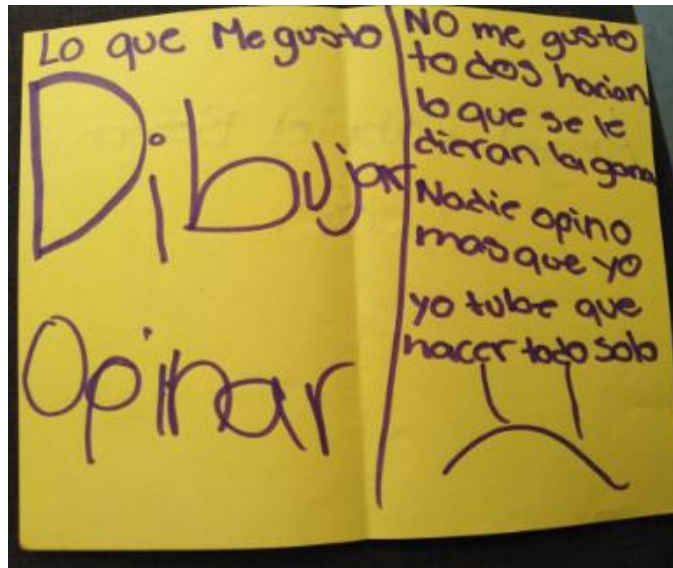 Lo que Me gusto
Dibujar
Opinar
NO me gusto
todos hacian
lo que se le
dieran la gana
Nadie opino
mas que yo
yo tube que
hacer todo solo